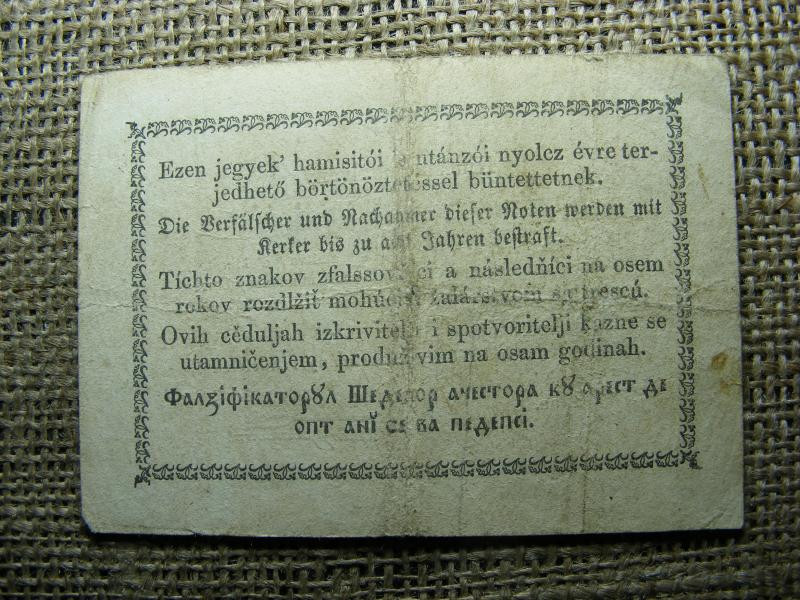 Ezen jegyek' hamisitói utánzói nyolcz évre ter-
jedhető börtönöztetéssel büntettetnek.
Die Verfälscher und Nachahmer dieser Noten werden mit
Kerker bis zu acht Jahren bestraft.
Tíchto znakov zfalssovňíci a následňíci na osem
rokov rozdlžiť mohúcím žalárstvom sa trescú.
Ovih cěduljah izkrivitelji i spotvoritelji kazne se
utamničenjem, produživim na osam godinah.
Фалзіфікаторꙋл Шеделор ачестора кꙋ арест де
опт анĭ се ва педепсі.